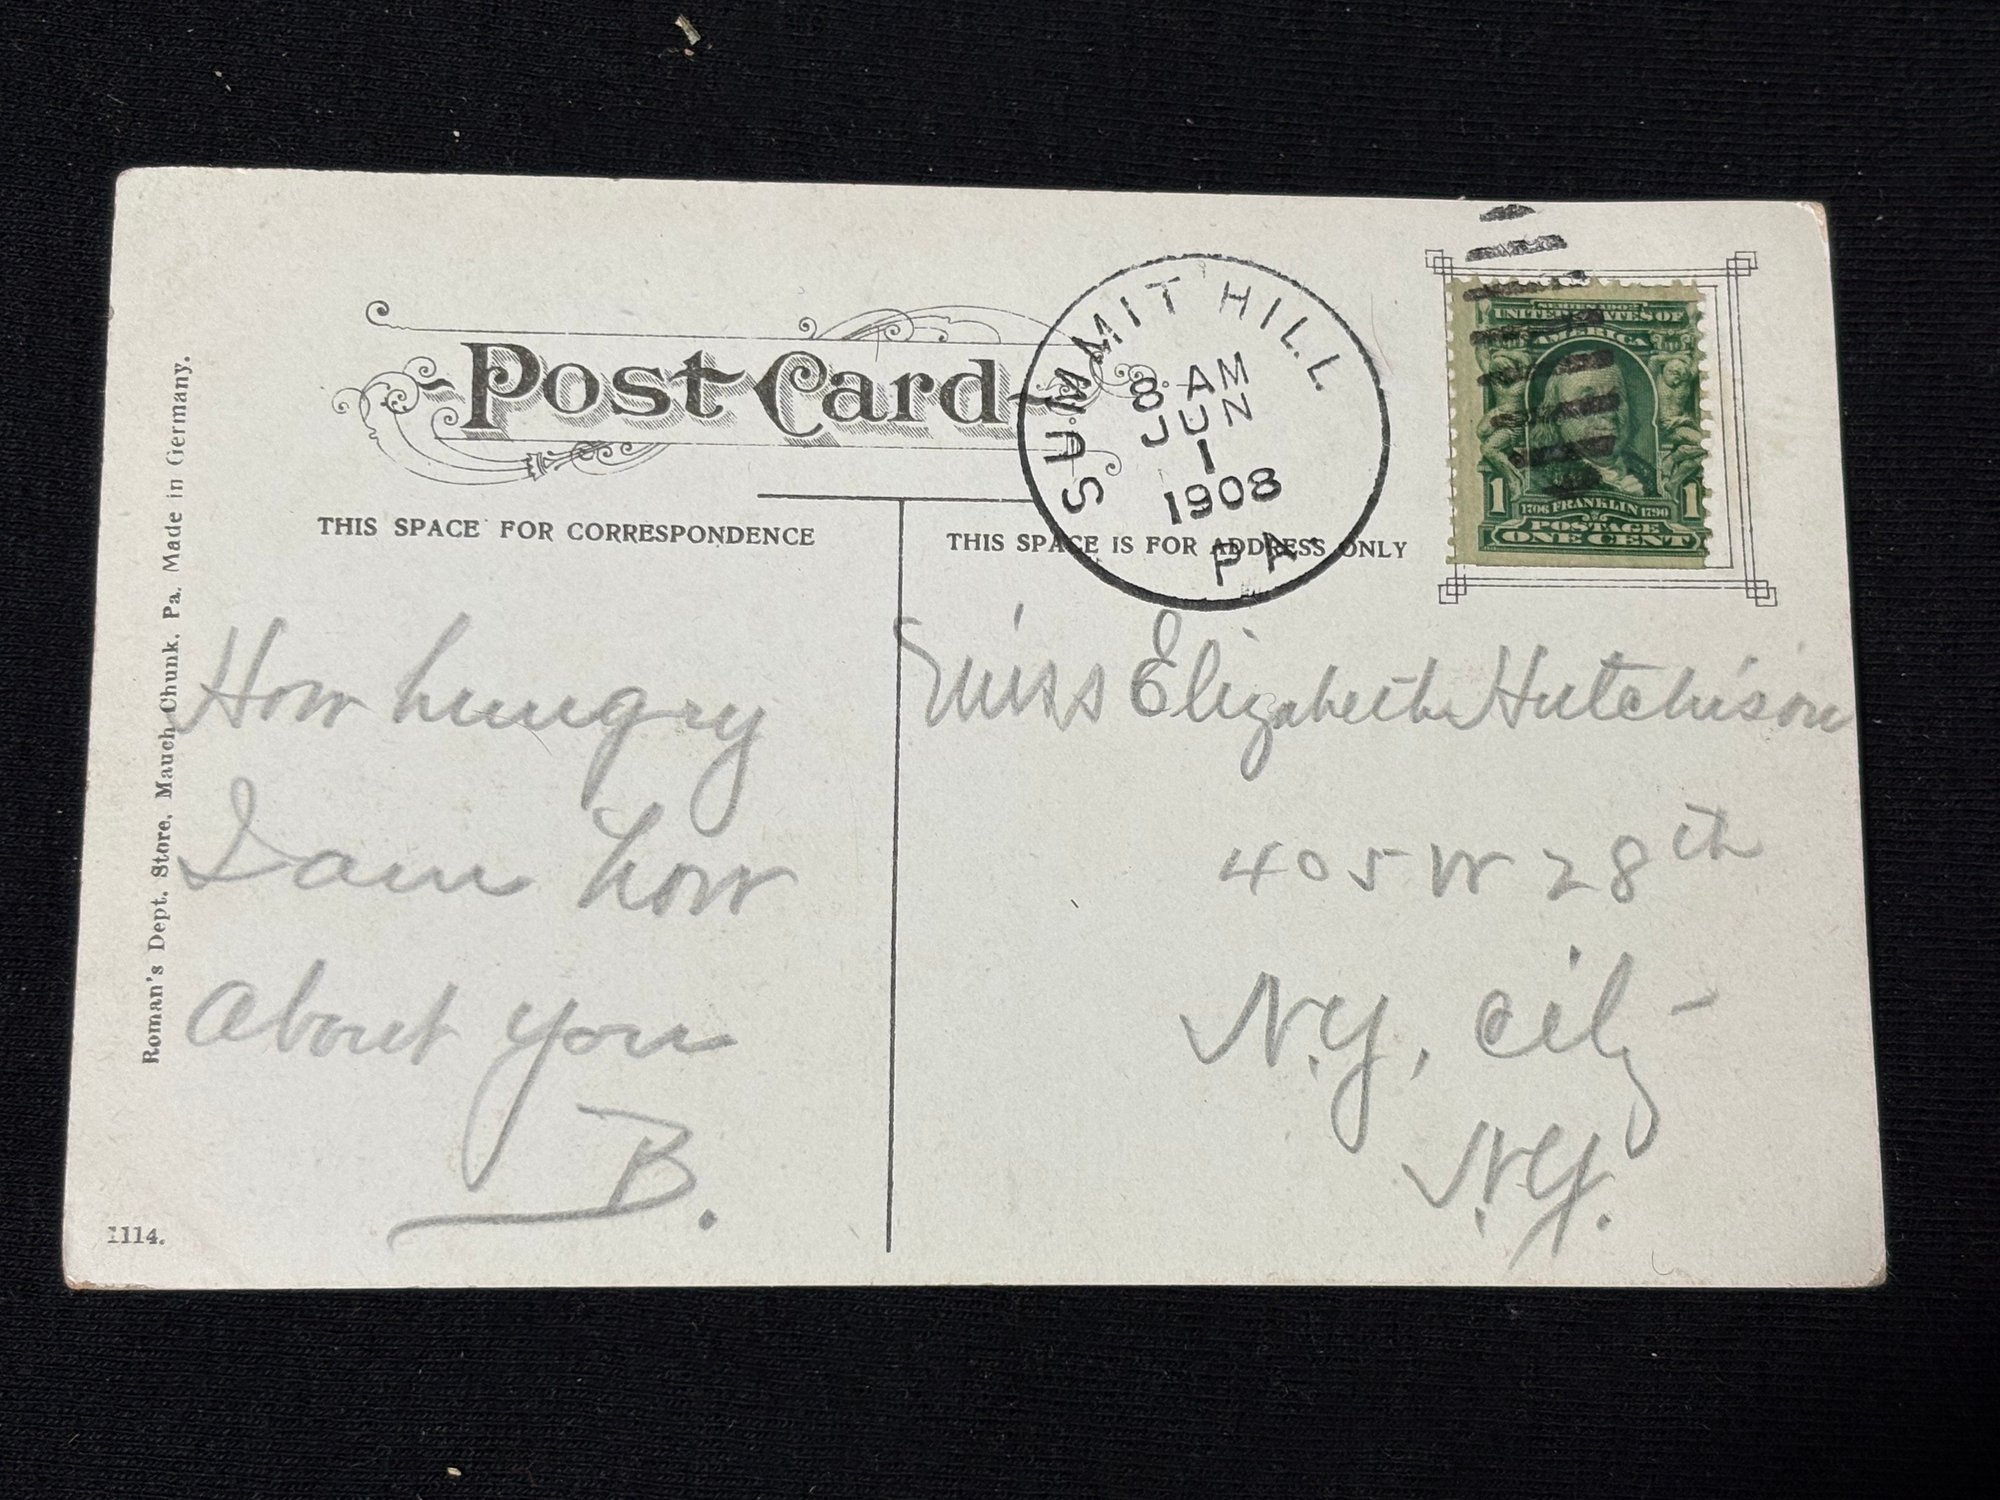 Post Card
SUMMIT HILL
8 AM
JUN
1
1908
PA.
SERIES 1902
UNITED STATES OF
AMERICA
1 1706 FRANKLIN 1790 1
POSTAGE
ONE CENT
THIS SPACE FOR CORRESPONDENCE
THIS SPACE IS FOR ADDRESS ONLY
Roman's Dept. Store, Mauch Chunk, Pa. Made in Germany.
How hungry
I am how
about you
B.
Miss Elizabeth Hutchison
405 W 28th
N.Y, City-
N.Y.
1114.